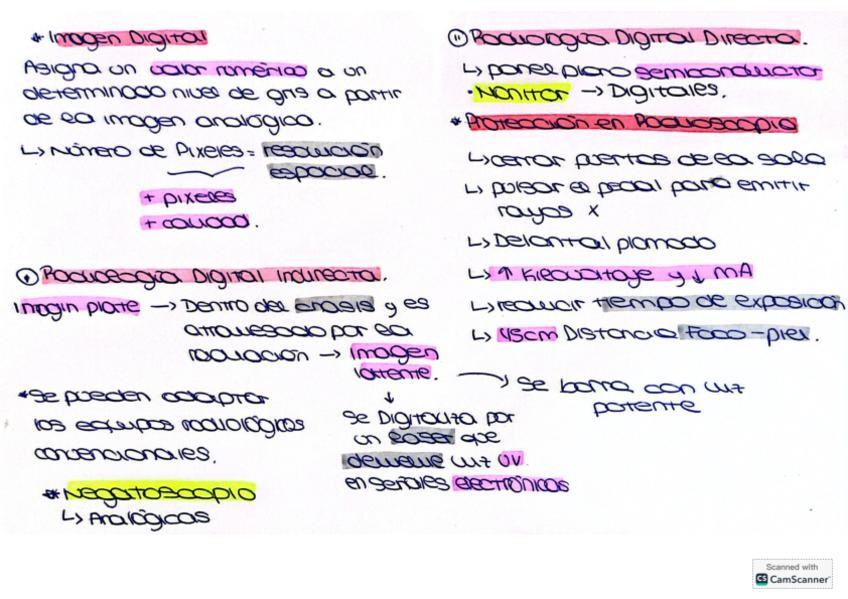 * Imagen Digital
Asigna un valor numérico a un
determinado nivel de gris a partir
de la imagen analógica.
↳ Número de Pixeles = resolución
espacial.
+ pixeles
+ calidad.
① Radiología Digital Indirecta.
Imagin plate → Dentro del chasis y es
atravesado por la
radiación → Imagen
latente.
↓
→ Se borra con luz
potente
Se Digitaliza por
un laser que
devuelve luz UV
en señales electrónicas
*Se pueden adaptar
los equipos radiológicos
convencionales.
* Negatoscopio
↳ Analógicas
⑪ Radiología Digital Directa.
↳ panel plano semiconductor
· Monitor → Digitales.
* Protección en Radioscopia
↳ cerrar puertas de la sala
↳ pulsar el pedal para emitir
rayos x
↳ Delantal plomado
↳ ↑ Kilovoltaje y ↓ mA
↳ reducir tiempo de exposición
↳ 45cm Distancia foco-piel.
Scanned with
CS CamScanner